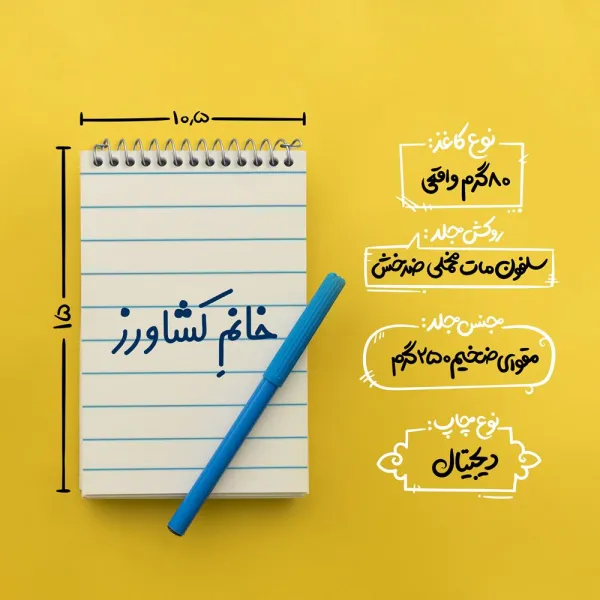 ۱۰٫۵
۱۵
خانمِ کشاورز
نوع کاغذ:
۸۰ گرم واقعی
روکش جلد:
سلفون مات مخملی ضدخش
جنس جلد:
مقوای ضخیم ۲۵۰ گرم
نوع چاپ:
دیجیتال